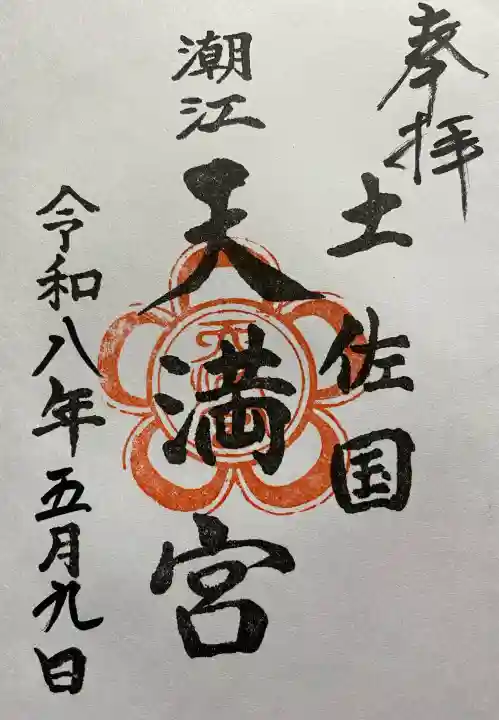 奉拝
土佐国
潮江
天満宮
令和八年五月九日